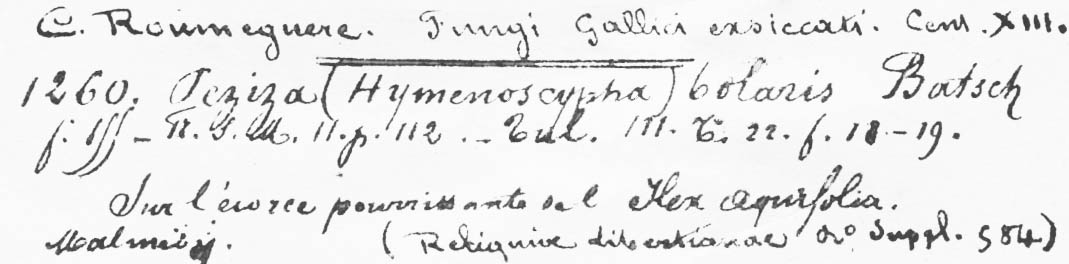 C. Roumeguere. Fungi Gallici exsiccati. Cent. XIII.
1260. Peziza (Hymenoscypha) bolaris Batsch
f. 155 - M. II. p. 112. - Tul. III. T. 22. f. 18-19.
Sur l'écorce pourrissante de l'Ilex aquifolia.
Malmédy. (Reliquiae Libertianae Suppl. 584)